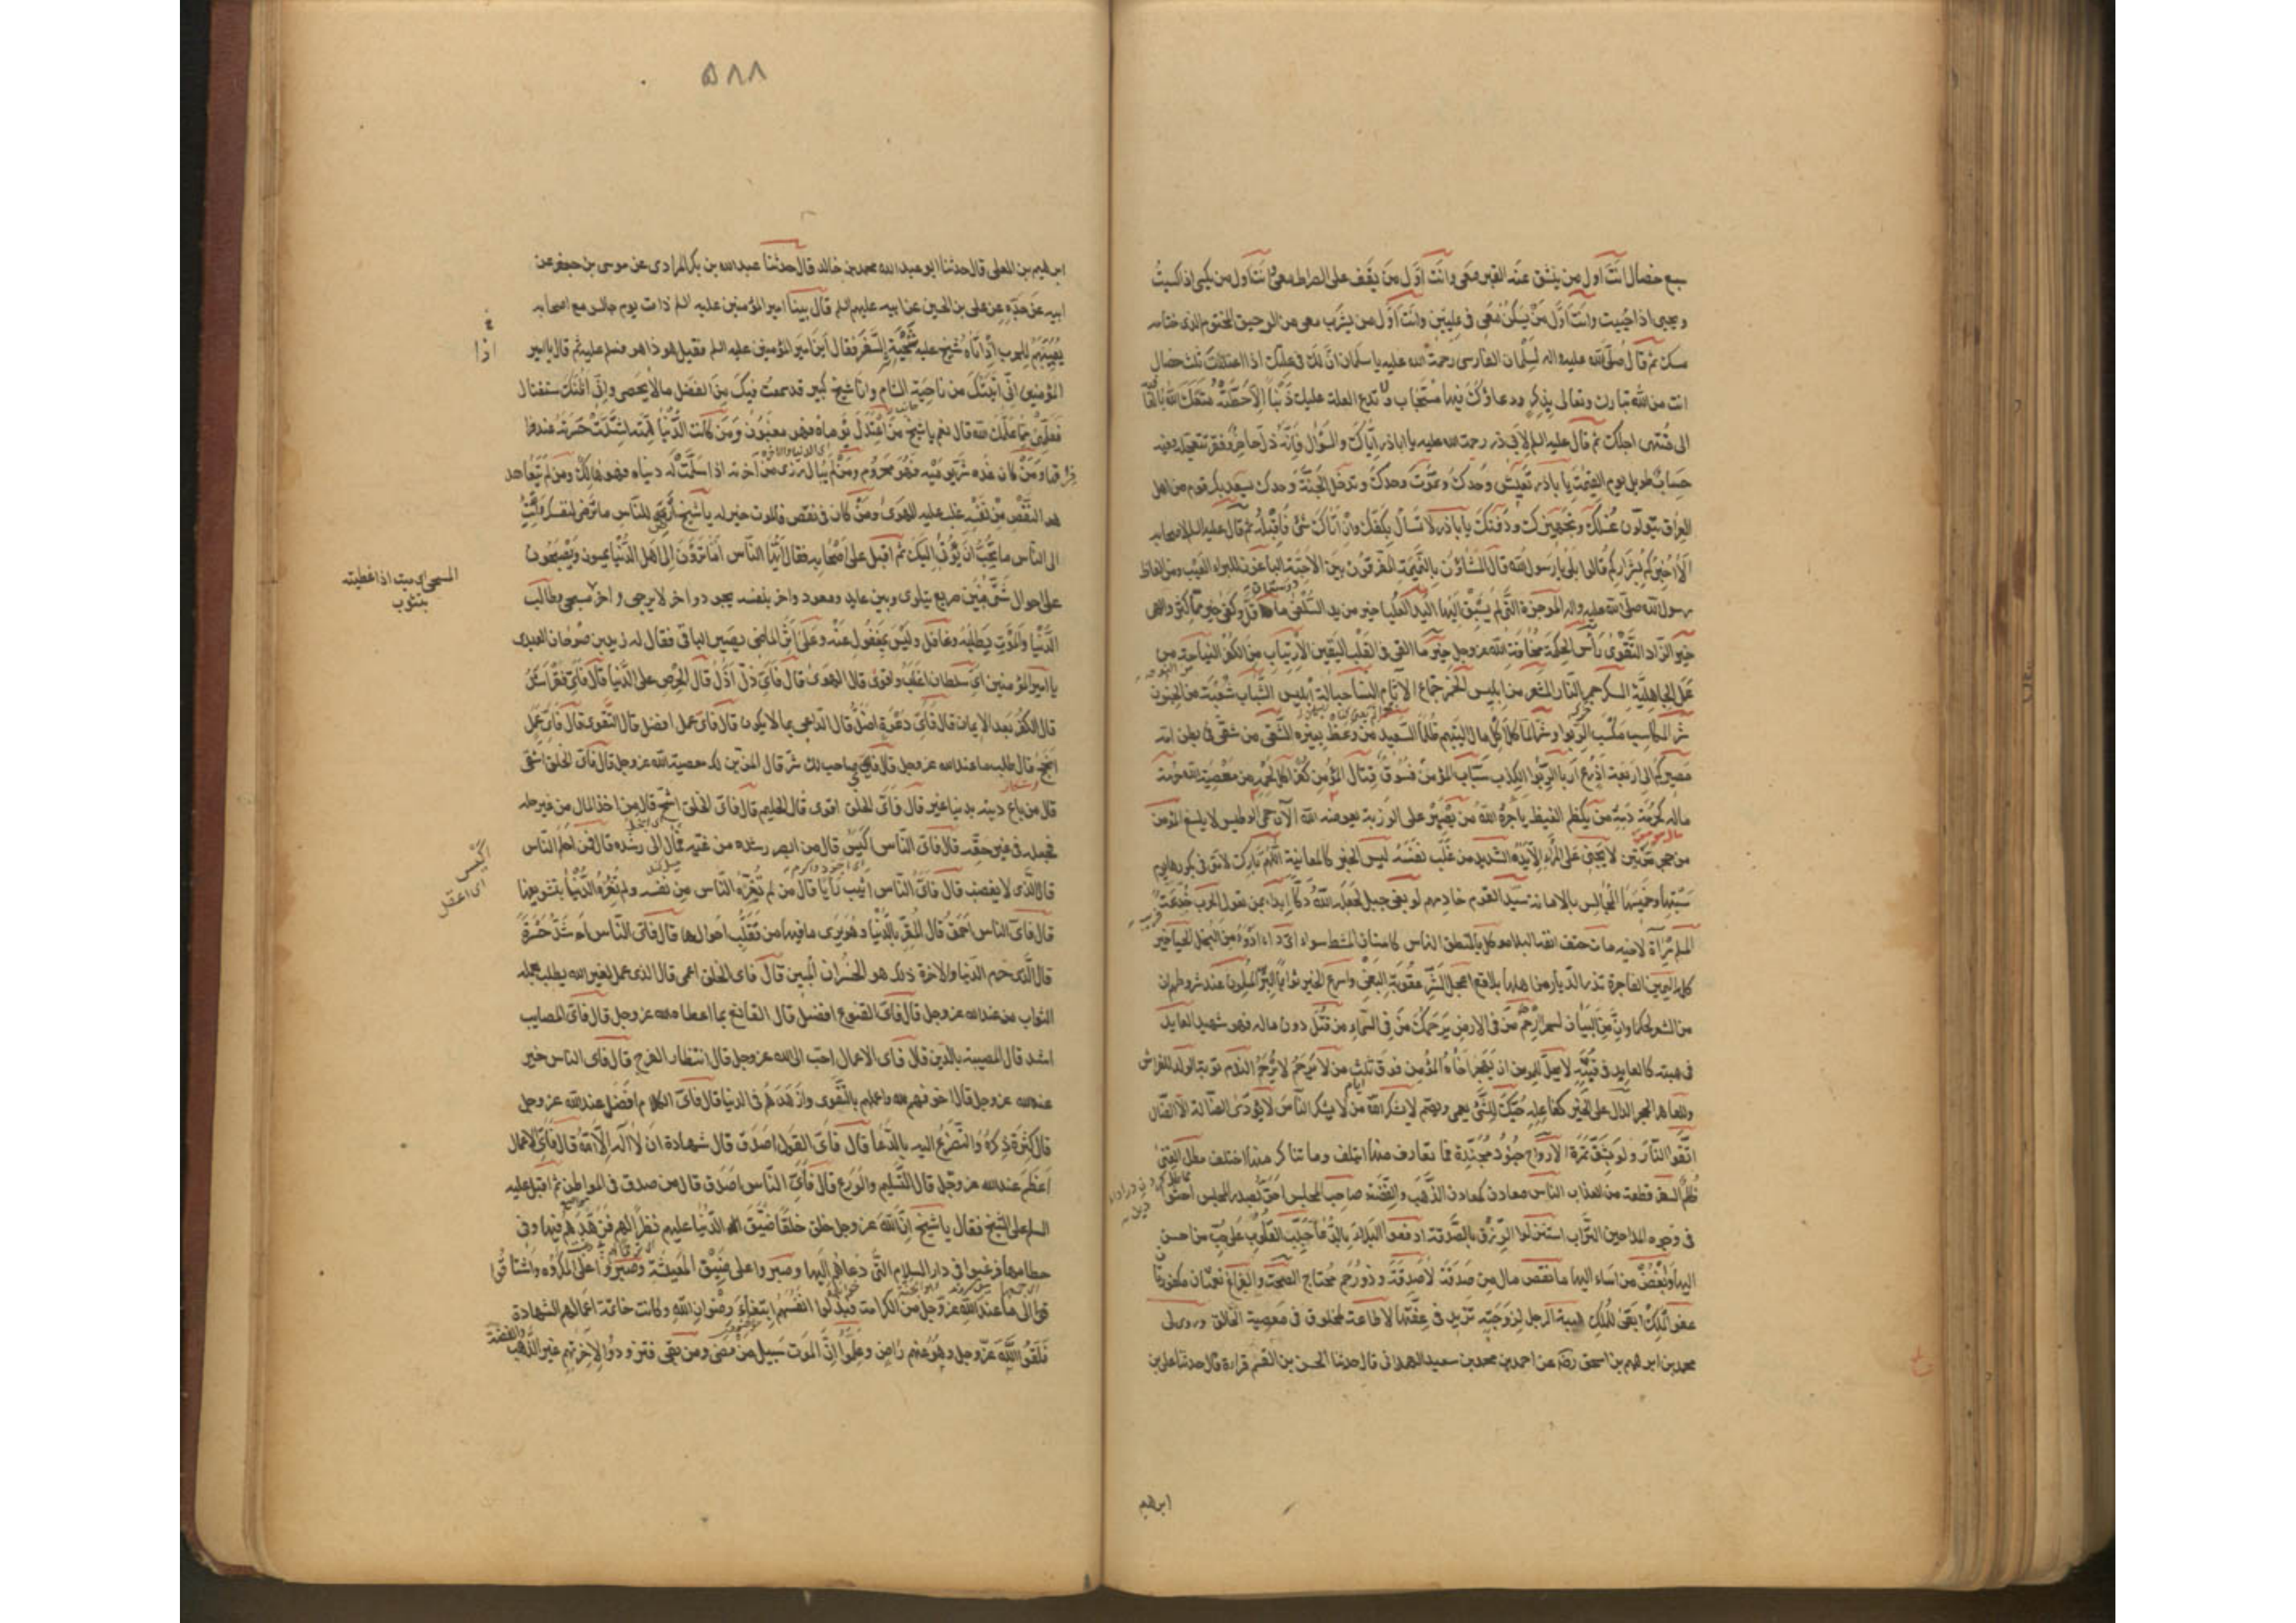 سبع خصال انت اول من ينشق عنه القبر معى وانت اول من يقف على الصراط معى وانت اول من يكسى اذا كسيتُ
ويحيى اذا حييت وانت اول من يسكن معى فى عليين وانت اول من يشرب معى من الرحيق المختوم الذى ختامه
مسك ثم قال صلى الله عليه واله لسلمان الفارسى رحمة الله عليه يا سلمان ان لك فى علتك اذا اعتللت ثلث خصال
انت من الله تبارك وتعالى بذكر ودعاؤك فيها مستجاب ولا تدع العلة عليك ذنبا الا حطته متعك الله بالعافية
الى منتهى اجلك ثم قال عليه السلم لابى ذر رحمت الله عليه يا اباذر اياك والسؤال فانه ذل حاضر وفقر تتعجله وفيه
حساب طويل يوم القيمة يا باذر تعيش وحدك وتموت وحدك وتدخل الجنة وحدك يسعد بك قوم من اهل
العراق يتولون غسلك وتجهيزك ودفنك يا باذر لا تسال بكفك وان اتاك شئ فاقبله ثم قال عليه السلام لاصحابه
الا اخبركم بشراركم قالوا بلى يا رسول الله قال المشاؤن بالنميمة المفرقون بين الاحبة الباغون للبراء العيب ومن الفاظ
رسول الله صلى الله عليه واله الموجزة التى لم يسبق اليها اليد العليا خير من يد السفلى ما قل وكفى خير مما كثر والهى
خير الزاد التقوى راس الحكمة مخافة الله عز وجل خير ما القى فى القلب اليقين الارتياب من الكفر النياحة من
عمل الجاهلية السكر جمر النار الشعر من ابليس الخمر جماع الاثام النسا حبالة ابليس الشباب شعبة من الجنون
شر المكاسب كسب الربوا وشر الماكل اكل مال اليتيم ظلما السعيد من وعظ بغيره الشقى من شقى فى بطن امه
مصيركم الى اربعة اذرع اربا الربوا الكذب سباب المؤمن فسوق قتال المؤمن كفر اكل لحمه من معصية الله حرمة
ماله كحرمة دمه من يكظم الغيظ ياجره الله من يصبر على الرزية يعوضه الله الآن حمى الوطيس لا يلسع المؤمن
من جحر مرتين لا يجنى على المرء الا يده الشديد من غلب نفسه ليس الخبر كالمعاينة اللهم بارك لامتى فى بكورها يوم
سبتها وخميسها المجالس بالامانة سيد القوم خادمهم لو بغى جبل على جبل لجعله الله دكا ابدا بمن تعول الحرب خدعة
المسلم مرآة لاخيه مات حتف انفه البلاء موكل بالمنطق الناس كاسنان المشط سواء اى داء ادوى من البخل الحياء خير
كله اليمين الفاجرة تذر الديار من اهلها بلاقع اعجل الشر عقوبة البغى واسرع الخير ثوابا البر المسلمون عند شروطهم ان
من الشعر لحكما وان من البيان لسحرا ارحم من فى الارض يرحمك من فى السماء من قتل دون ماله فهو شهيد العايد
فى هبته كالعايد فى قيئه لا يحل للمومن ان يهجر اخاه المؤمن فوق ثلث من لا يرحم لا يرحم الندم توبة الولد للفراش
وللعاهر الحجر الدال على الخير كفاعله حبك للشئ يعمى ويصم لا يشكر الله من لا يشكر الناس لا يؤدى الضالة الا الضال
اتقوا النار ولو بشق تمرة الارواح جنود مجندة فما تعارف منها ائتلف وما تناكر منها اختلف مطل الغنى
ظلم السفر قطعة من العذاب الناس معادن كمعادن الذهب والفضة صاحب المجلس احق بصدر المجلس احثوا
فى وجوه المداحين التراب استنزلوا الرزق بالصدقة ادفعوا البلاء بالدعا جبلت القلوب على حب من احسن
اليها وبغض من اساء اليها ما نقص مال من صدقة لا صدقة وذو رحم محتاج الصحة والفراغ نعمتان مكفورتان
عفو الملك ابقى للملك هيبة الرجل لزوجته تزيد فى عفتها لا طاعة لمخلوق فى معصية الخالق وروى لى
محمد بن ابرهيم بن اسحق رضه عن احمد بن محمد بن سعيد الهمدانى قال حدثنا الحسن بن القسم قراءة قال حدثنا على بن
ابرهيم
٥٨٨
ابرهيم بن المعلى قال حدثنا ابو عبد الله محمد بن خالد قال حدثنا عبد الله بن بكر المرادى عن موسى بن جعفر عن
ابيه عن جده عن على بن الحسين عن ابيه عليهم السلم قال بينا امير المؤمنين عليه السلم ذات يوم جالس مع اصحابه
يعبيهم للحرب اذا اتاه شيخ عليه شحبة السفر فقال اين امير المؤمنين عليه السلم فقيل هو ذا هو فسلم عليه ثم قال يا امير
المؤمنين انى اتيتك من ناحية الشام وانا شيخ كبير قد سمعت فيك من الفضل مالا يحصى وانى اظنك ستغتال
فعلمنى مما علمك الله قال نعم يا شيخ من اعتدل يوماه فهو مغبون ومن كانت الدنيا همته اشتدت حسرته عند
فراقها ومن كان غده شر يوميه فهو محروم ومن لم يبال رزى من آخرته اذا سلمت له دنياه فهو هالك ومن لم يتعاهد
النقص من نفسه غلب عليه الهوى ومن كان فى نقص فالموت خير له يا شيخ ارض للناس ما ترضى لنفسك وائت
الى الناس ما تحب ان يؤتى اليك ثم اقبل على اصحابه فقال ايها الناس اما ترون الى اهل الدنيا يمسون ويصبحون
على احوال شتى فبين صريع يتلوى وبين عايد ومعود واخر بنفسه يجود واخر لا يرجى واخر مسجى وطالب
الدنيا والموت يطلبه وغافل وليس بمغفول عنه وعلى اثر الماضى يصير الباقى فقال له زيد بن صوحان العبدى
يا امير المؤمنين اى سلطان اغلب واقوى قال الهوى قال فاى ذل اذل قال الحرص على الدنيا قال فاى فقر اشد
قال الكفر بعد الايمان قال فاى دعوة اضل قال الداعى بما لا يكون قال فاى عمل افضل قال التقوى قال فاى عمل
انجح قال طلب ما عند الله عز وجل قال فاى صاحب لك شر قال المزين لك معصية الله عز وجل قال فاى الخلق اشقى
قال من باع دينه بدنيا غيره قال فاى الخلق اقوى قال الحليم قال فاى الخلق اشح قال من اخذ المال من غير حله
فجعله فى غير حقه قال فاى الناس اكيس قال من ابصر رشده من غيه فمال الى رشده قال فمن احلم الناس
قال الذى لا يغضب قال فاى الناس اثبت رايا قال من لم تغره الناس من نفسه ولم تغره الدنيا بتشويفها
قال فاى الناس احمق قال المغتر بالدنيا وهو يرى ما فيها من تقلب احوالها قال فاى الناس اشد حسرة
قال الذى حرم الدنيا والاخرة ذلك هو الخسران المبين قال فاى الخلق اعمى قال الذى عمل لغير الله يطلب بعمله
الثواب من عند الله عز وجل قال فاى القنوع افضل قال القانع بما اعطاه الله عز وجل قال فاى المصايب
اشد قال المصيبة بالدين قال فاى الاعمال احب الى الله عز وجل قال انتظار الفرج قال فاى الناس خير
عند الله عز وجل قال اخوفهم لله واعملهم بالتقوى وازهدهم فى الدنيا قال فاى الكلام افضل عند الله عز وجل
قال كثرة ذكره والتضرع اليه بالدعا قال فاى القول اصدق قال شهادة ان لا اله الا الله قال فاى الاعمال
اعظم عند الله عز وجل قال التسليم والورع قال فاى الناس اصدق قال من صدق فى المواطن ثم اقبل عليه
السلم على الشيخ فقال يا شيخ ان الله عز وجل خلق خلقا ضيق الدنيا عليهم نظرا لهم فزهدهم فيها وفى
حطامها فرغبوا فى دار السلام التى دعاهم اليها وصبروا على ضيق المعيشة وصبروا على المكروه واشتاقوا
الى ما عند الله عز وجل من الكرامة فبذلوا انفسهم ابتغاء رضوان الله وكانت خاتمة اعمالهم الشهادة
فلقوا الله عز وجل وهو عنهم راض وعلموا ان الموت سبيل من مضى ومن بقى فتزودوا لاخرتهم غير الذهب والفضة
اذا
المسجى اى ميت اذا غطيته
بثوب
اكيس
اى اعقل